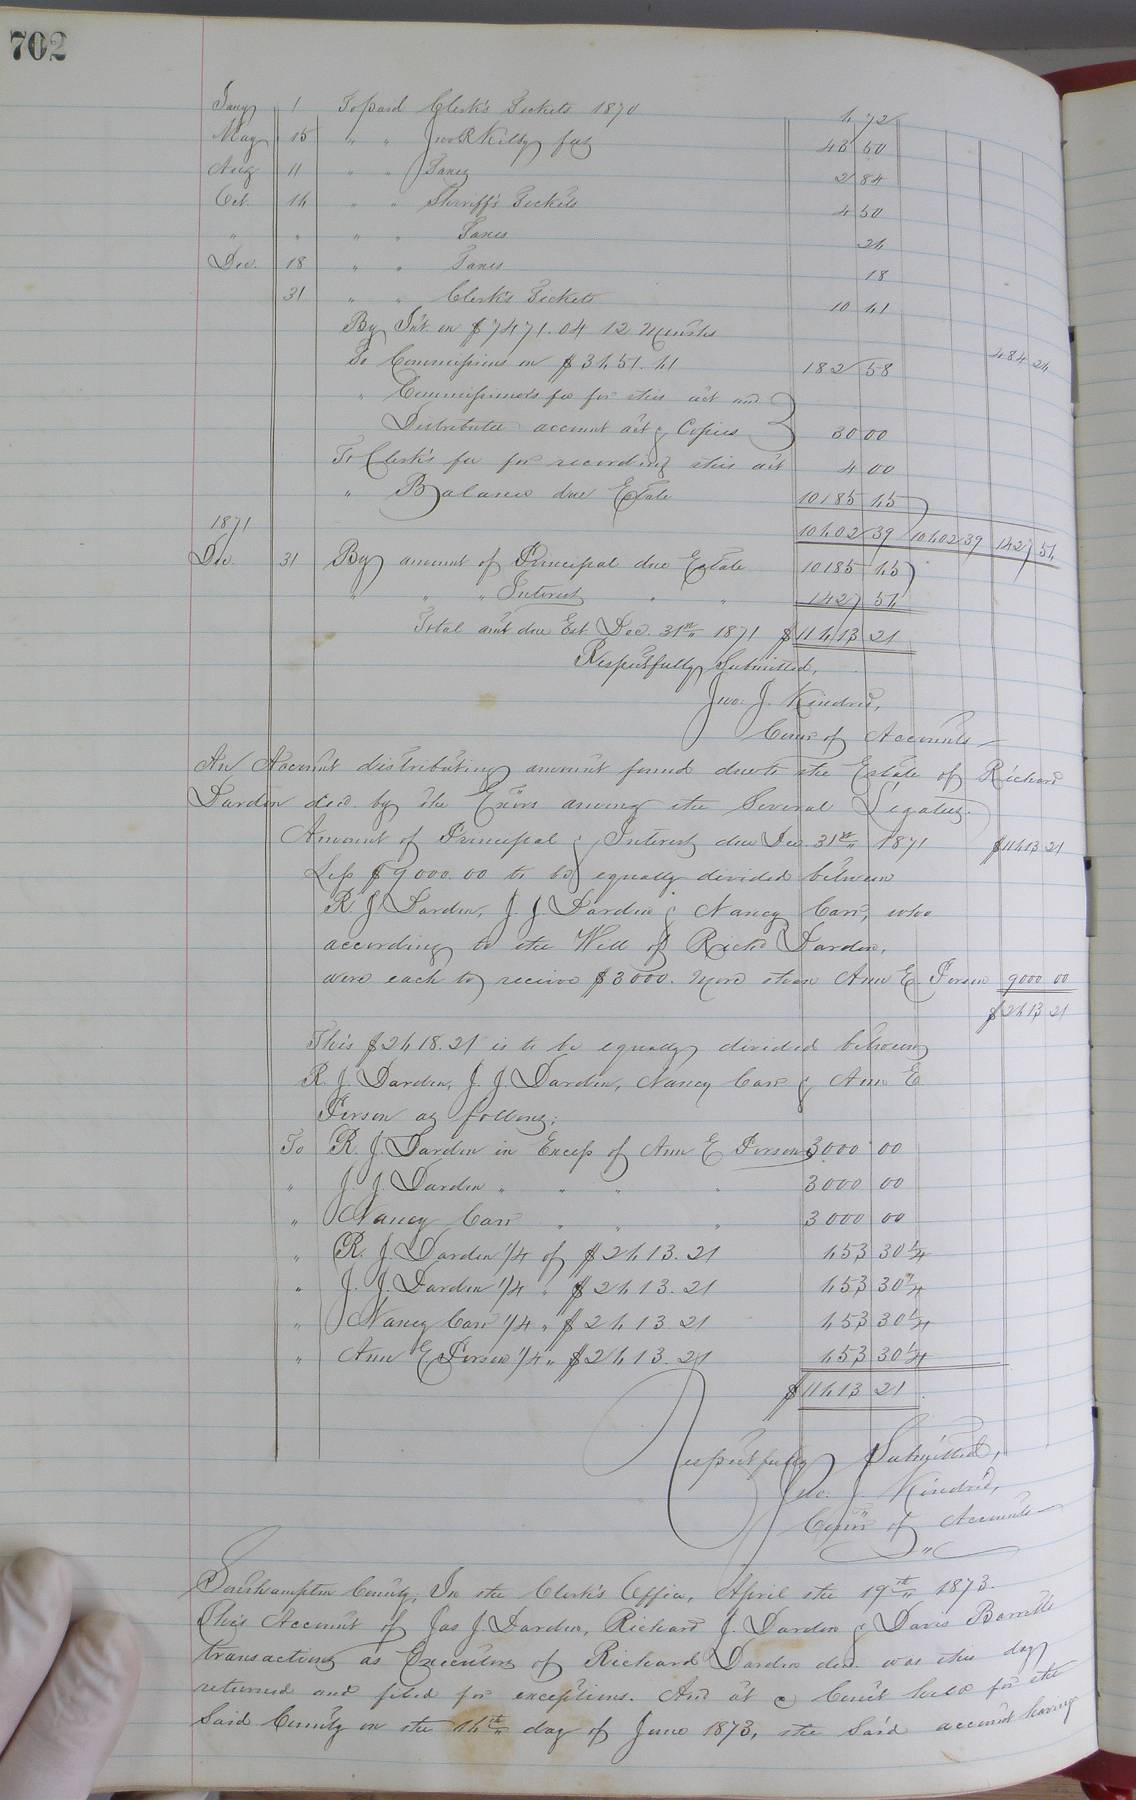 702
Jany 1 To paid Clerk's Tickets 1870 6 72
May 15 " " Jno R Kilby fee 43 50
Aug 11 " " Taxes 2 84
Oct. 16 " " Sheriff's Tickets 4 50
" " " " Taxes 26
Dec. 18 " " Taxes 18
31 " " Clerk's Tickets 10 61
By Int on $7471.04 12 Months 448 26
To Commissions on $3651.61 182 58
" Commissioners fee for this act and
Distributed account act & Copies 30 00
To Clerk's fee for recording this act 4 00
" Balance due Estate 10185 65
1871 10602 39 10602 39 1427 56
Dec. 31 By amount of Principal due Estate 10185 65
" " " Interest " " 1427 56
Total am't due Est Dec. 31st 1871 $11613 21
Respectfully Submitted,
Jno. J. Kindred,
Comr of Accounts
An Account distributing amount found due to the Estate of Richard
Darden decd. by the Exors among the Several Legatees.
Amount of Principal & Interest due Dec. 31st 1871 $11613 21
Less $9000.00 to be equally divided between
R. J. Darden, J. J. Darden & Nancy Carr, who
according to the Will of Richd Darden,
were each to receive $3000. more than Ann E. Person 9000 00
$2613 21
This $2613.21 is to be equally divided between
R. J. Darden, J. J. Darden, Nancy Carr & Ann E
Person as follows:
To R. J. Darden in Excess of Ann E Person 3000 00
" J. J. Darden " " " " 3000 00
" Nancy Carr " " " 3000 00
" R. J. Darden 1/4 of $2613.21 653 30 1/4
" J. J. Darden 1/4 " $2613.21 653 30 1/4
" Nancy Carr 1/4 " $2613 21 653 30 1/4
" Ann E Person 1/4 " $2613.21 653 30 1/4
$11613 21
Respectfully Submitted,
Jno. J. Kindred,
Comr of Accounts
Southampton County, In the Clerk's Office, April the 19th 1873.
This Account of Jas J Darden, Richard J. Darden & Davis Barretts
transactions as Executors of Richard Darden decd. was this day
returned and filed for exceptions. And at a Court held for the
said County on the 16th day of June 1873, the said account having